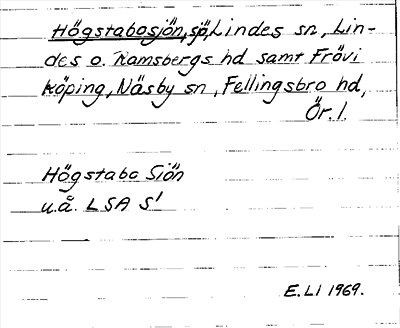 Högstabosjön, sjö, Lindes sn, Lin-
des o. Ramsbergs hd samt Frövi
köping, Näsby sn, Fellingsbro hd,
Ör. l.
Högstabo Siön
u.å. LSA S1
E. LI 1969.